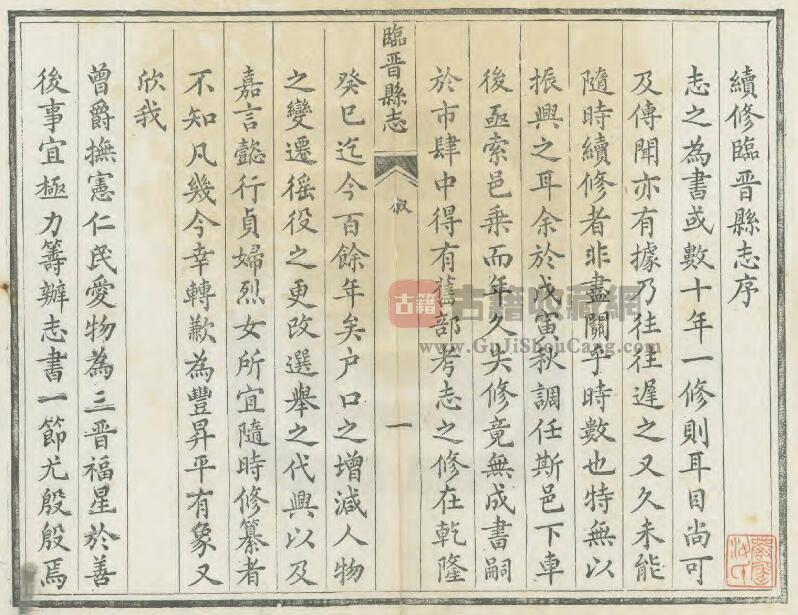 續修臨晉縣志序
志之為書或數十年一修則耳目尚可
及傳聞亦有據乃往往遲之又久未能
隨時續修者非盡關乎時數也特無以
振興之耳余於戊寅秋調任斯邑下車
後亟索邑乘而年久失修竟無成書嗣
於市肆中得有舊部考志之修在乾隆
臨晉縣志
敘
一
癸巳迄今百餘年矣户口之增減人物
之變遷徭役之更改選舉之代興以及
嘉言懿行貞婦烈女所宜隨時修纂者
不知凡幾今幸轉歉為豐昇平有象又
欣我
曾爵撫憲仁民愛物為三晉福星於善
後事宜極力籌辦志書一節尤殷殷焉
古籍
古籍收藏網
www.GuJiShouCang.com